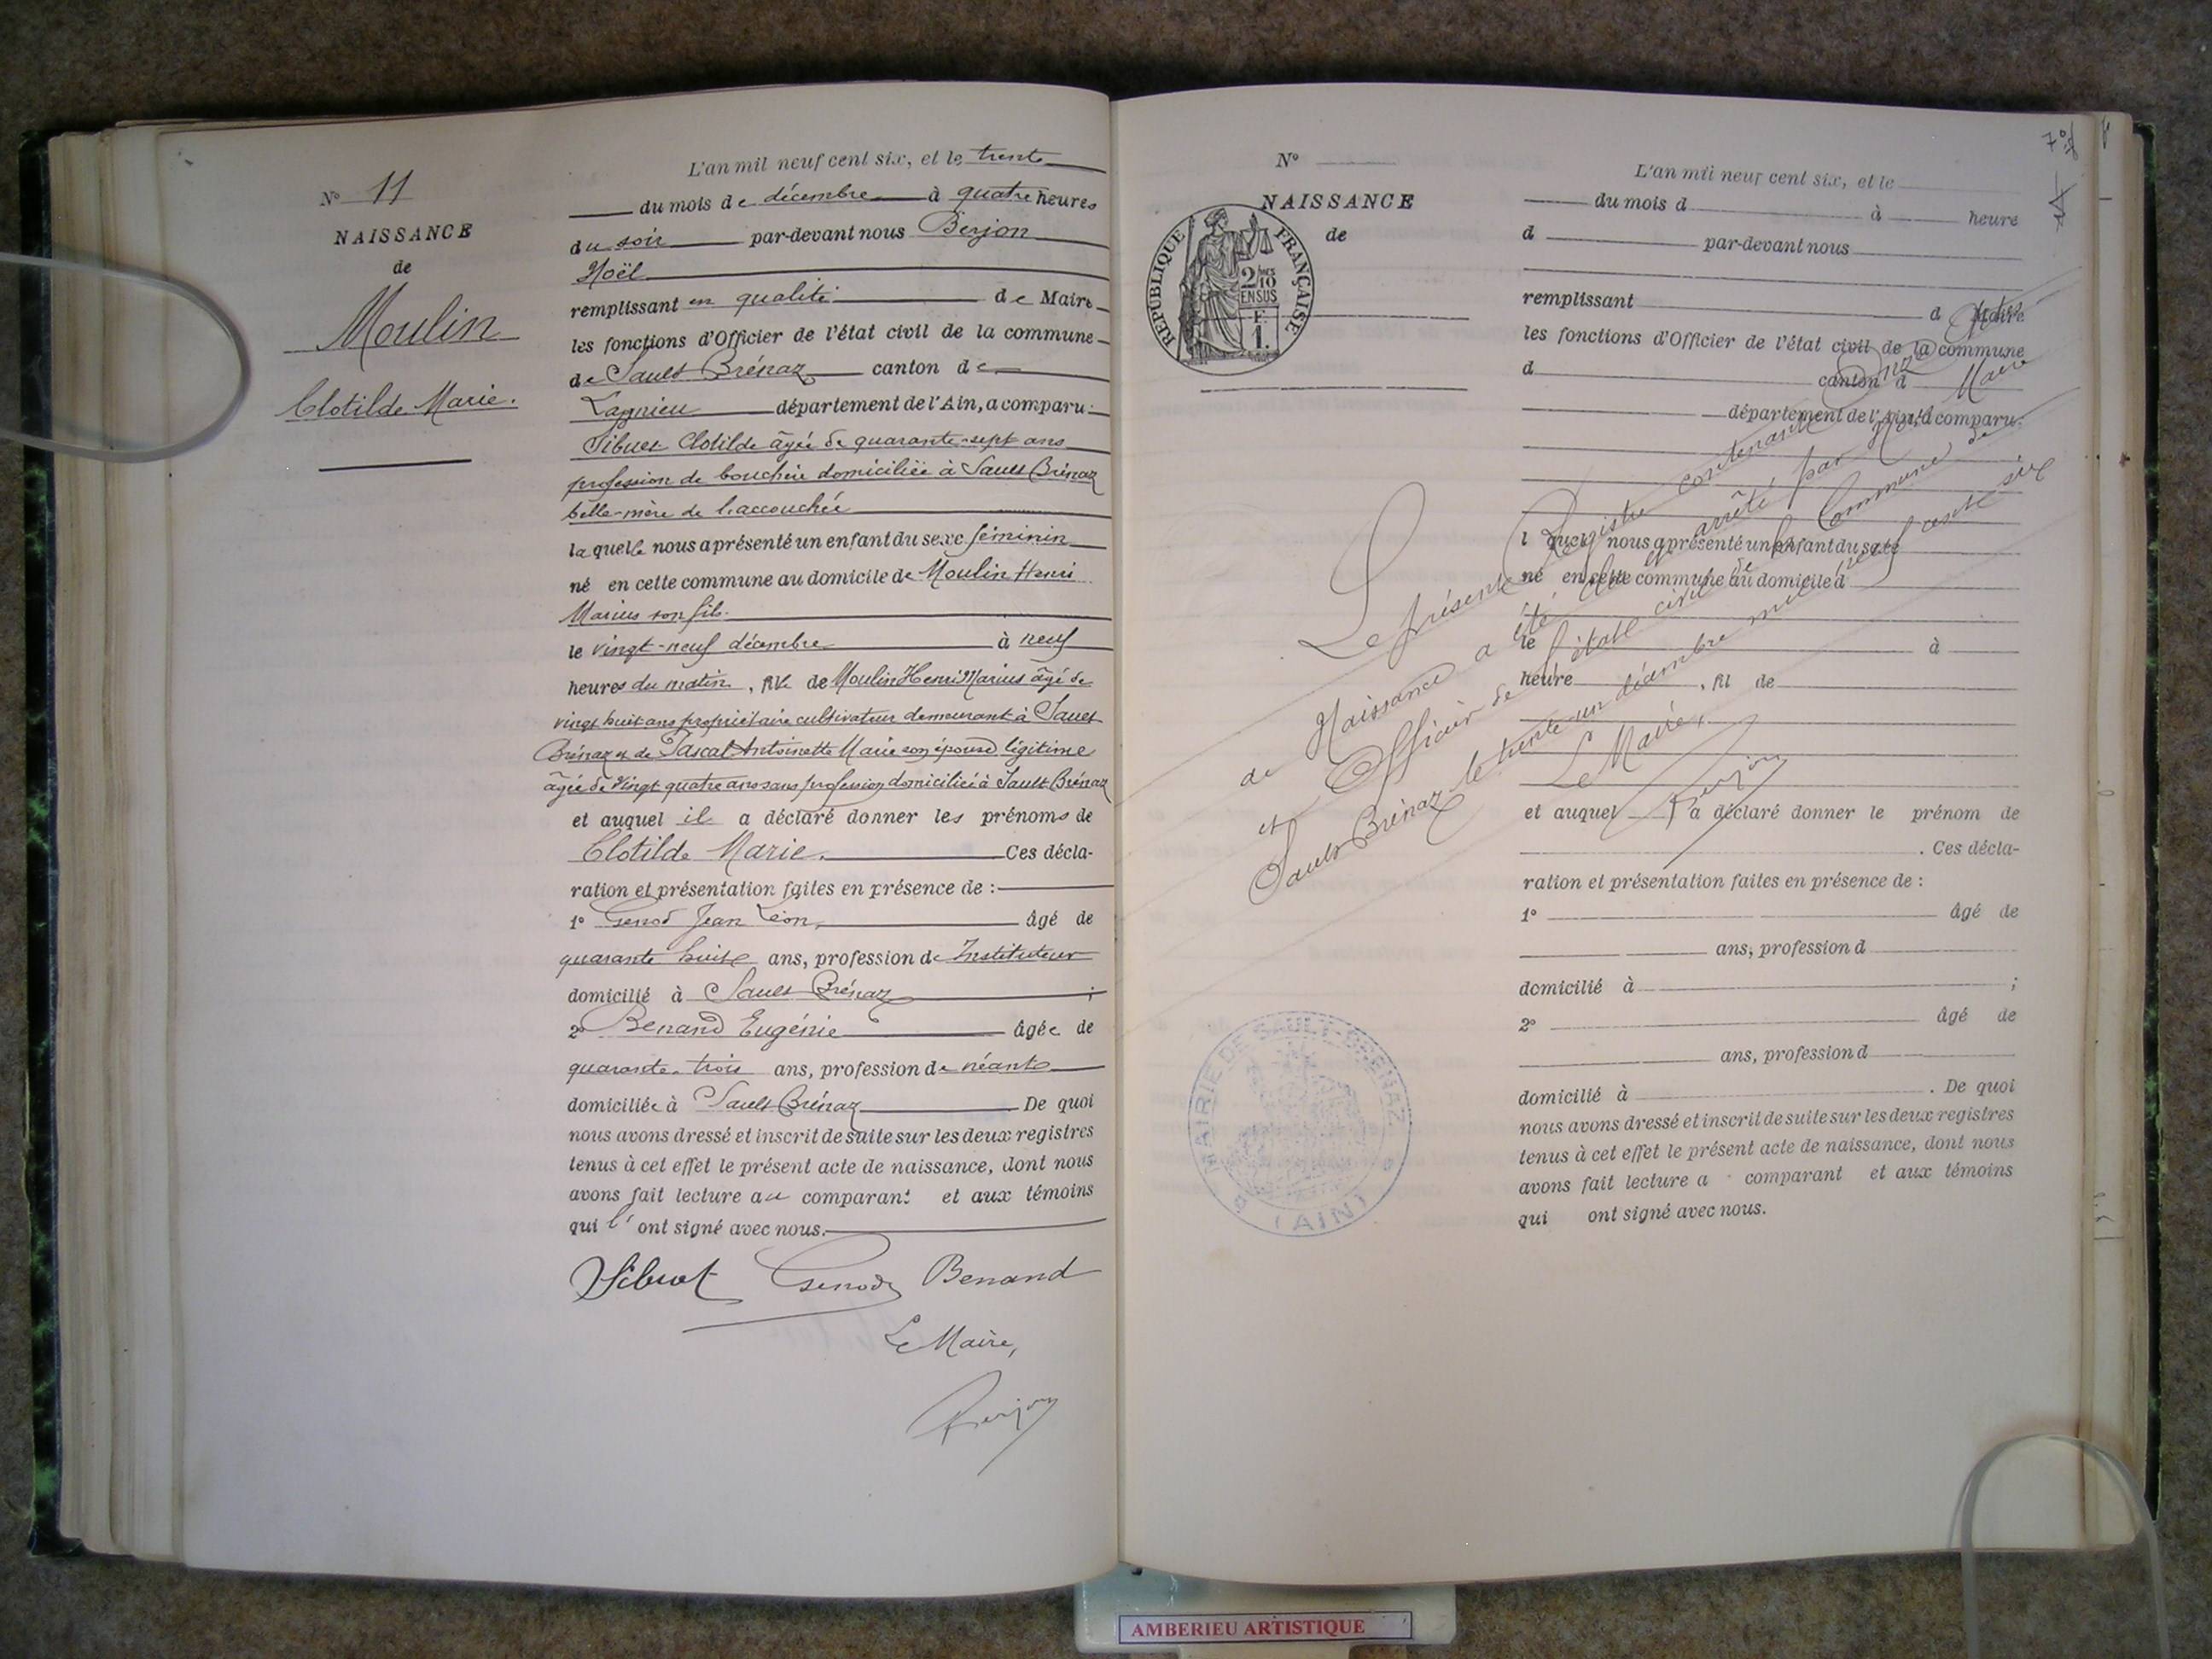 N° 11
NAISSANCE
de
Moulin
Clotilde Marie.
L'an mil neuf cent six, et le trente
du mois de décembre à quatre heures
du soir par-devant nous Berjon
Noël
remplissant en qualité de Maire
les fonctions d'Officier de l'état civil de la commune
de Sault Brénaz canton de
Lagnieu département de l'Ain, a comparu :
Sibuet Clotilde âgée de quarante-sept ans
profession de bouchère domiciliée à Sault Brénaz
belle-mère de l'accouchée
laquelle nous a présenté un enfant du sexe féminin
né en cette commune au domicile de Moulin Henri
Marius son fils.
le vingt-neuf décembre à neuf
heures du matin, fille de Moulin Henri Marius âgé de
vingt huit ans propriétaire cultivateur demeurant à Sault
Brénaz et de Pascal Antoinette Marie son épouse légitime
âgée de vingt quatre ans sans profession domiciliée à Sault Brénaz
et auquel il a déclaré donner les prénoms de
Clotilde Marie. Ces décla-
ration et présentation faites en présence de :
1° Genod Jean Léon, âgé de
quarante huit ans, profession de Instituteur
domicilié à Sault Brénaz ;
2° Benand Eugénie âgée de
quarante-trois ans, profession de néant
domiciliée à Sault Brénaz De quoi
nous avons dressé et inscrit de suite sur les deux registres
tenus à cet effet le présent acte de naissance, dont nous
avons fait lecture au comparant et aux témoins
qui l' ont signé avec nous.
Sibuet Genod Benand
Le Maire,
Berjon
N°
NAISSANCE
de
RÉPUBLIQUE FRANÇAISE
2/10
EN SUS
1.
L'an mil neuf cent six, et le
du mois d à heure
d par-devant nous
remplissant d Maire
les fonctions d'Officier de l'état civil de la commune
d canton d
département de l'Ain, a comparu :
l quel nous a présenté un enfant du sexe
né en cette commune au domicile d
le à
heure , fil de
et auquel a déclaré donner le prénom de
. Ces décla-
ration et présentation faites en présence de :
1° âgé de
ans, profession d
domicilié à ;
2° âgé de
ans, profession d
domicilié à . De quoi
nous avons dressé et inscrit de suite sur les deux registres
tenus à cet effet le présent acte de naissance, dont nous
avons fait lecture a comparant et aux témoins
qui ont signé avec nous.
Le présent Registre contenant
de Naissance a été clos et arrêté par Maire
et Officier de l'état civil de la Commune de
Sault Brénaz le trente un décembre mil neuf cent six
Le Maire,
Berjon
MAIRIE DE SAULT-BRENAZ
(AIN)
AMBERIEU ARTISTIQUE